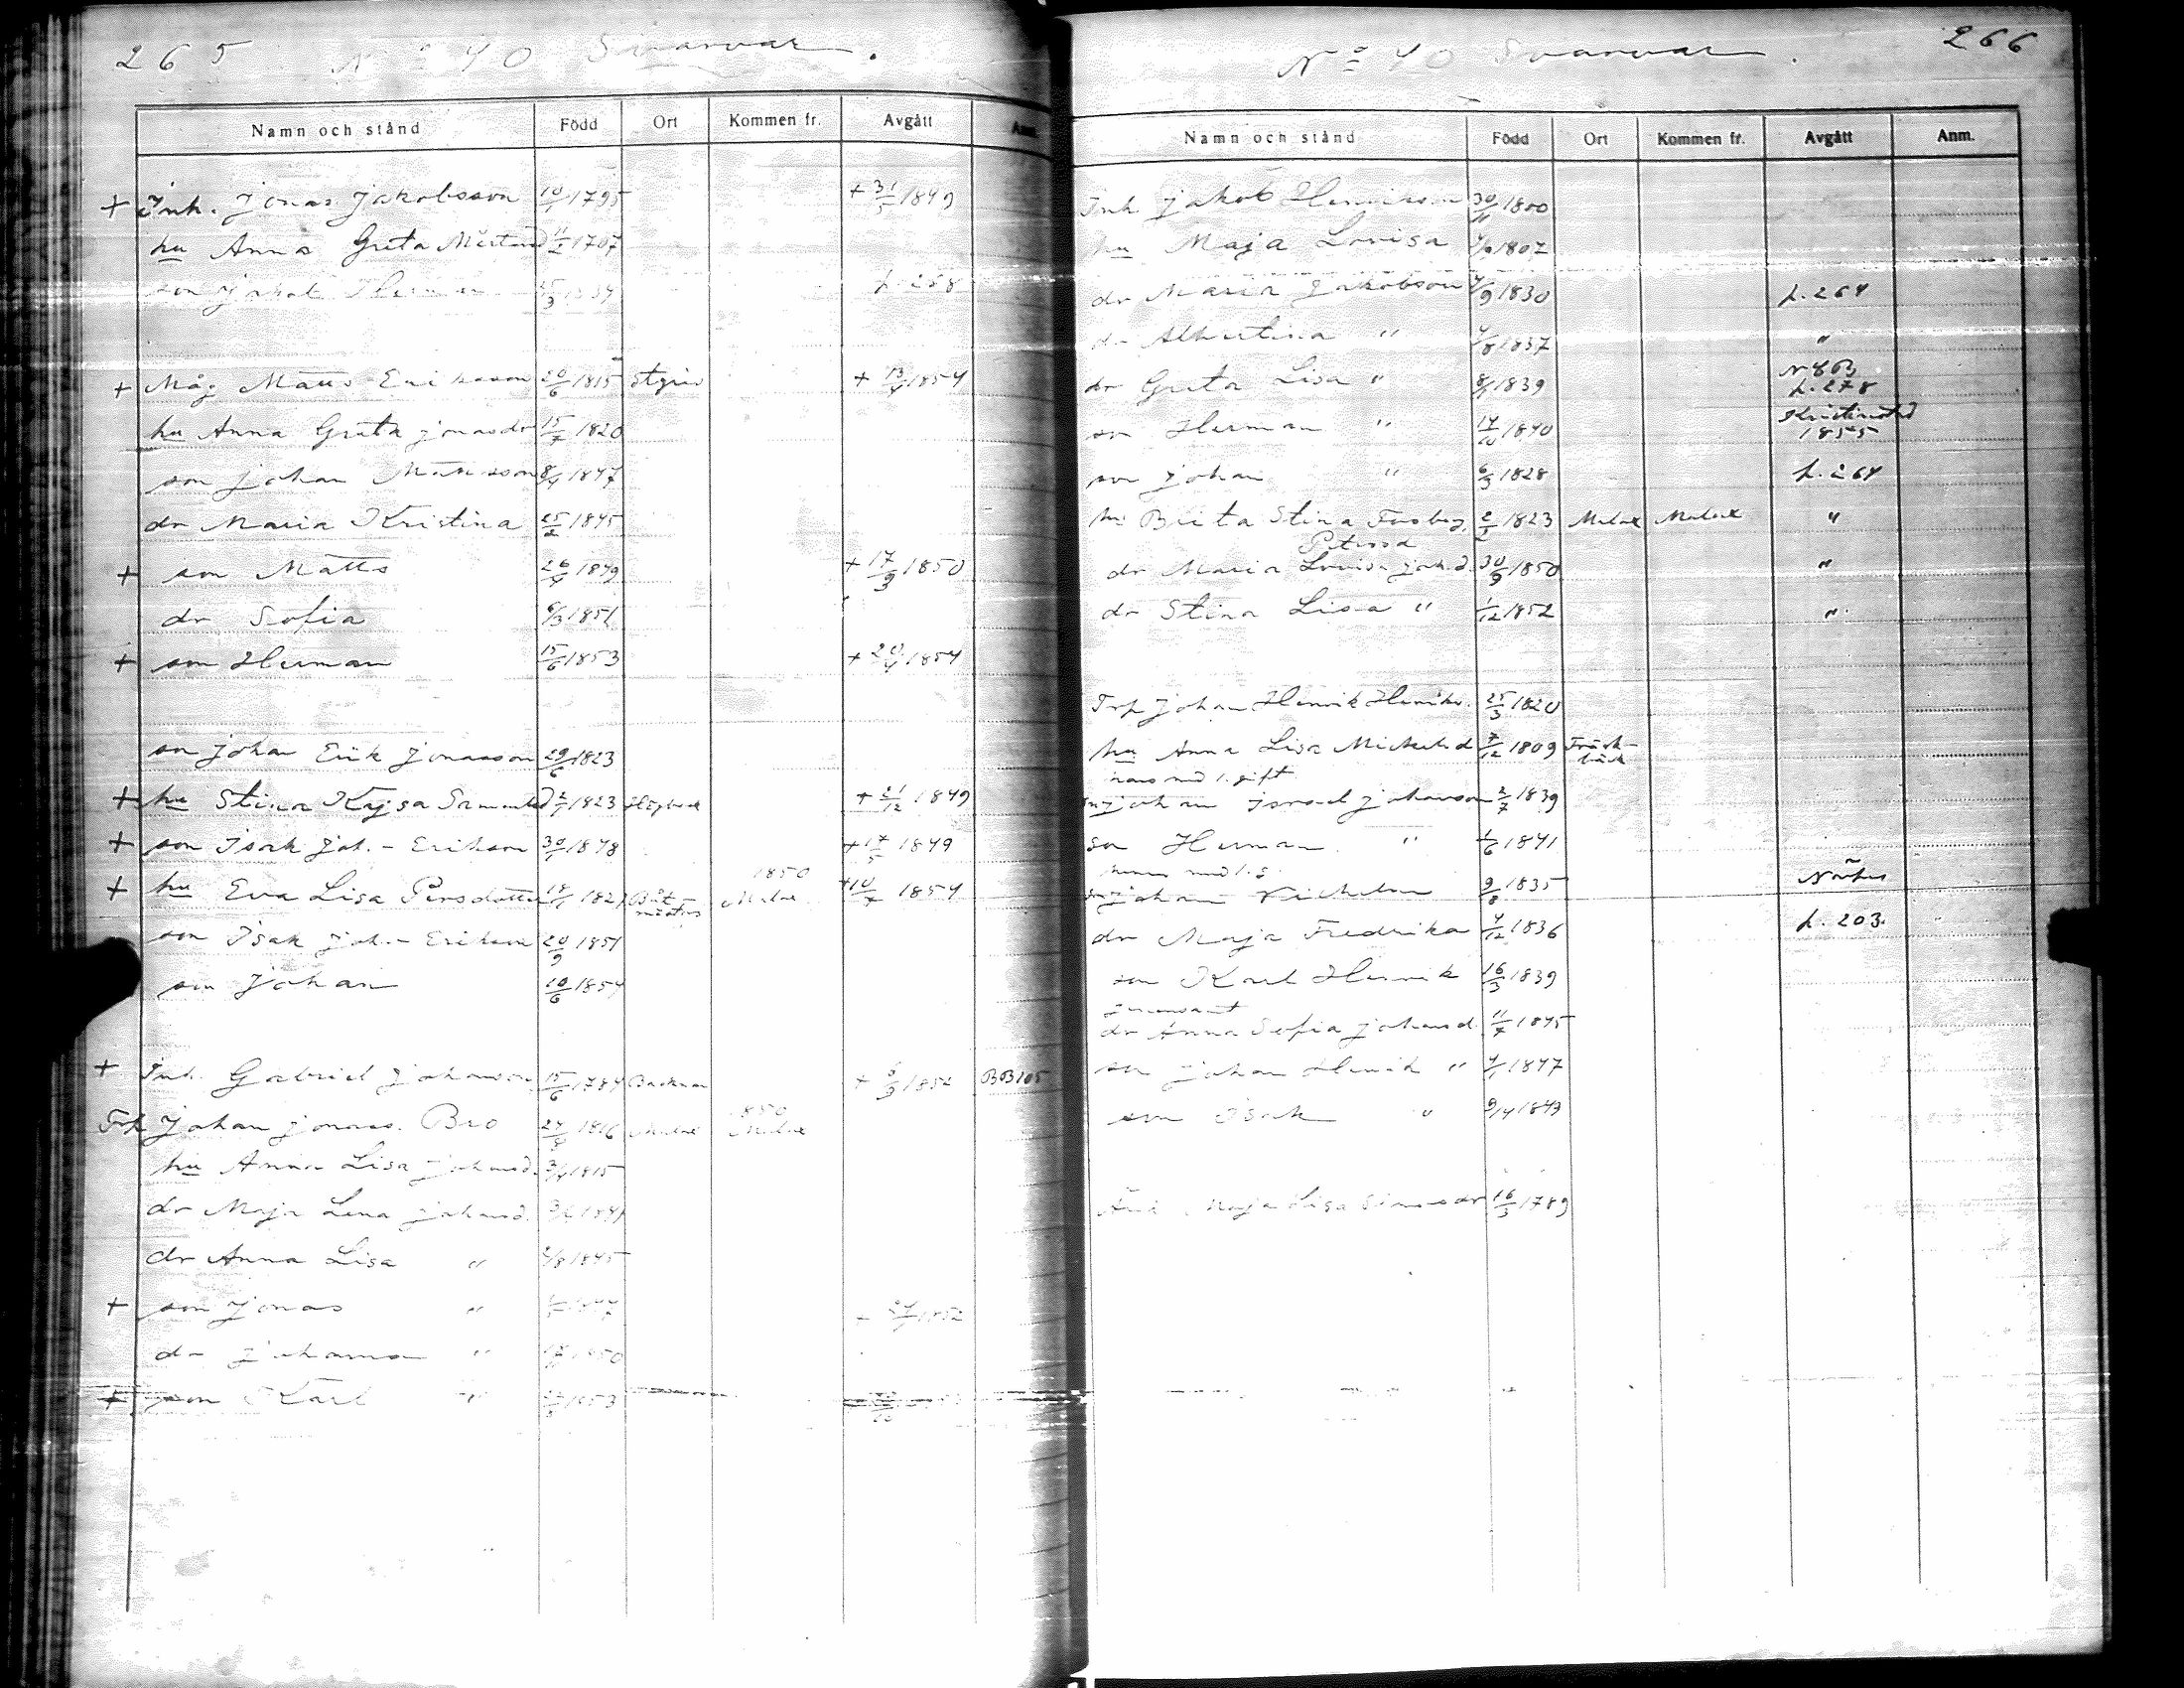 265 No 40 Svarvar.
Namn och stånd Född Ort Kommen fr. Avgått Anm.
+ Inh. Jonas Jakobsson 10/1 1795 + 31/5 1849
hu Anna Greta Mårtensd 11/2 1707
son Jakob Herman 25/3 1834 p. 268
+ Måg Matts Eriksson 20/6 1815 + 13/4 1854
hu Anna Greta Jonasdr 15/7 1820
son Johan Mattsson 8/4 1847
dr Maria Kristina 25/2 1845
+ son Matts 26/4 1849 + 17/3 1850
dr Sofia 6/3 1851
+ son Herman 15/6 1853 + 20/4 1854
son Johan Erik Jonasson 29/6 1823
+ hu Stina Kajsa Samuelsd 2/1 1823 + 21/12 1849
+ son Isak Joh.-Erikson 30/1 1848 + 17/5 1849
+ hu Eva Lisa Persdotter 18/1 182 1850 Malax + 10/7 1854
son Isak Joh.-Erikson 20/9 1851
son Johan 10/6 1854
+ Inh. Gabriel Johansson 15/6 1784 Backman + 5/3 1852 BB105
Johan Jonass. Bro 24/8 1816 Malax 1850 Malax
hu Anna Lisa Johansd. 3/4 1815
dr Maja Lena Johansd. 1841
dr Anna Lisa " 2/8 1845
+ son Jonas " 1852
dr Johanna " 1850
+ son Karl " 1853
No 40 Svarvar. 266
Namn och stånd Född Ort Kommen fr. Avgått Anm.
Inh Jakob Henriksson 30/11 1800
hu Maja Lovisa 1802
dr Maria Jakobson 4/9 1830 p. 264
dr Albertina " 4/8 1837 "
dr Greta Lisa " 8/1 1839 N 863 p. 278
son Herman " 14/10 1840 Kristinestad 1855
son Johan " 6/3 1828 p. 264
hu Brita Stina Forsberg, 2/2 1823 Malax Malax "
Petersd
dr Maria Lovisa Joh.d. 30/9 1850 "
dr Stina Lisa " 1/12 1852 "
Trp Johan Henrik Henriks. 25/3 1820
hu Anna Lisa Mickelsd 7/12 1809 Träskbäck
hans med 1. gift
Johan Israel Johansson 2/7 1839
son Herman " 1/6 1841
hennes med 1. g.
Johan Vilhelm 9/8 1835 Närpes
dr Maja Fredrika 4/12 1836 p. 203.
son Karl Henrik 16/3 1839
dr Anna Sofia Johansd. 11/7 1845
son Johan Henrik " 4/1 1847
son Isak " 9/4 1843
Änk Maja Lisa Simonsdr 16/3 1789